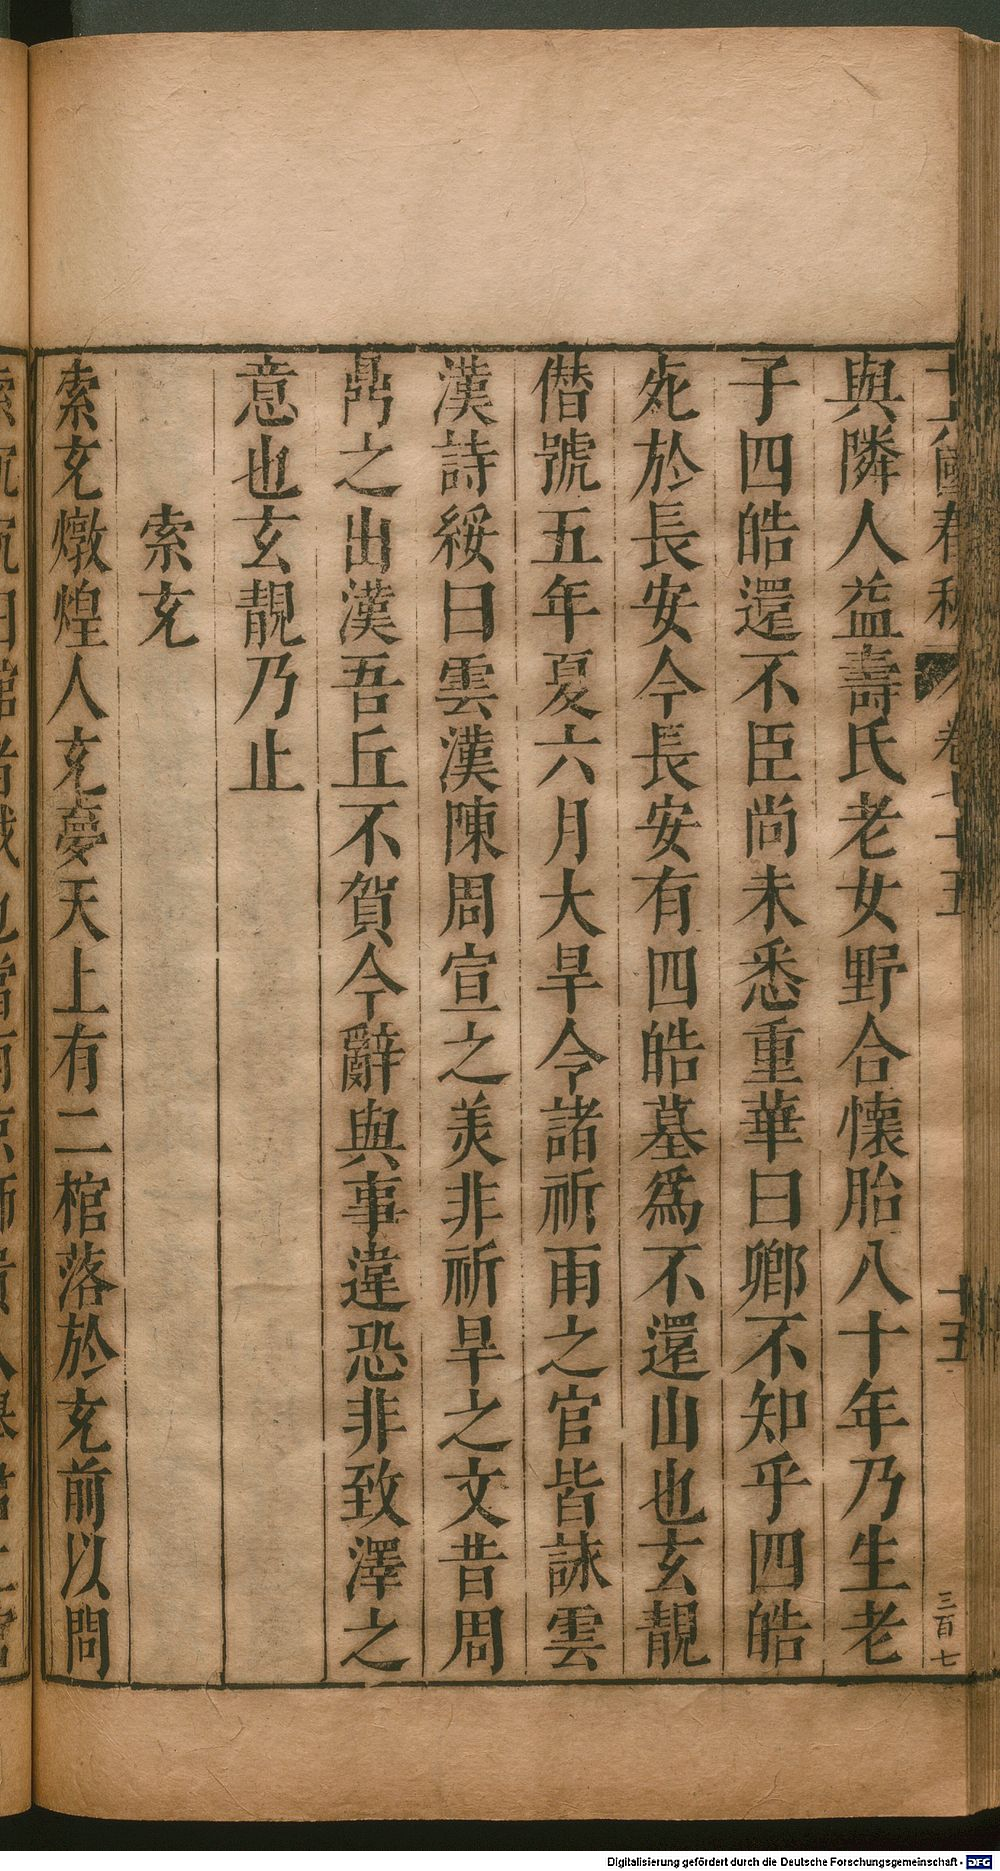 十六國春秋 卷七十五 十五 三百七
與隣人益壽氏老女野合懷胎八十年乃生老
子四皓還不臣尚未悉重華曰卿不知乎四皓
死於長安今長安有四皓墓爲不還山也玄靚
僣號五年夏六月大旱令諸祈雨之官皆誄雲
漢詩綏曰雲漢陳周宣之美非祈旱之文昔周
鼎之出漢吾丘不賀今辭與事違恐非致澤之
意也玄靚乃止
索充
索充燉煌人充夢天上有二棺落於充前以問
Digitalisierung gefördert durch die Deutsche Forschungsgemeinschaft - DFG